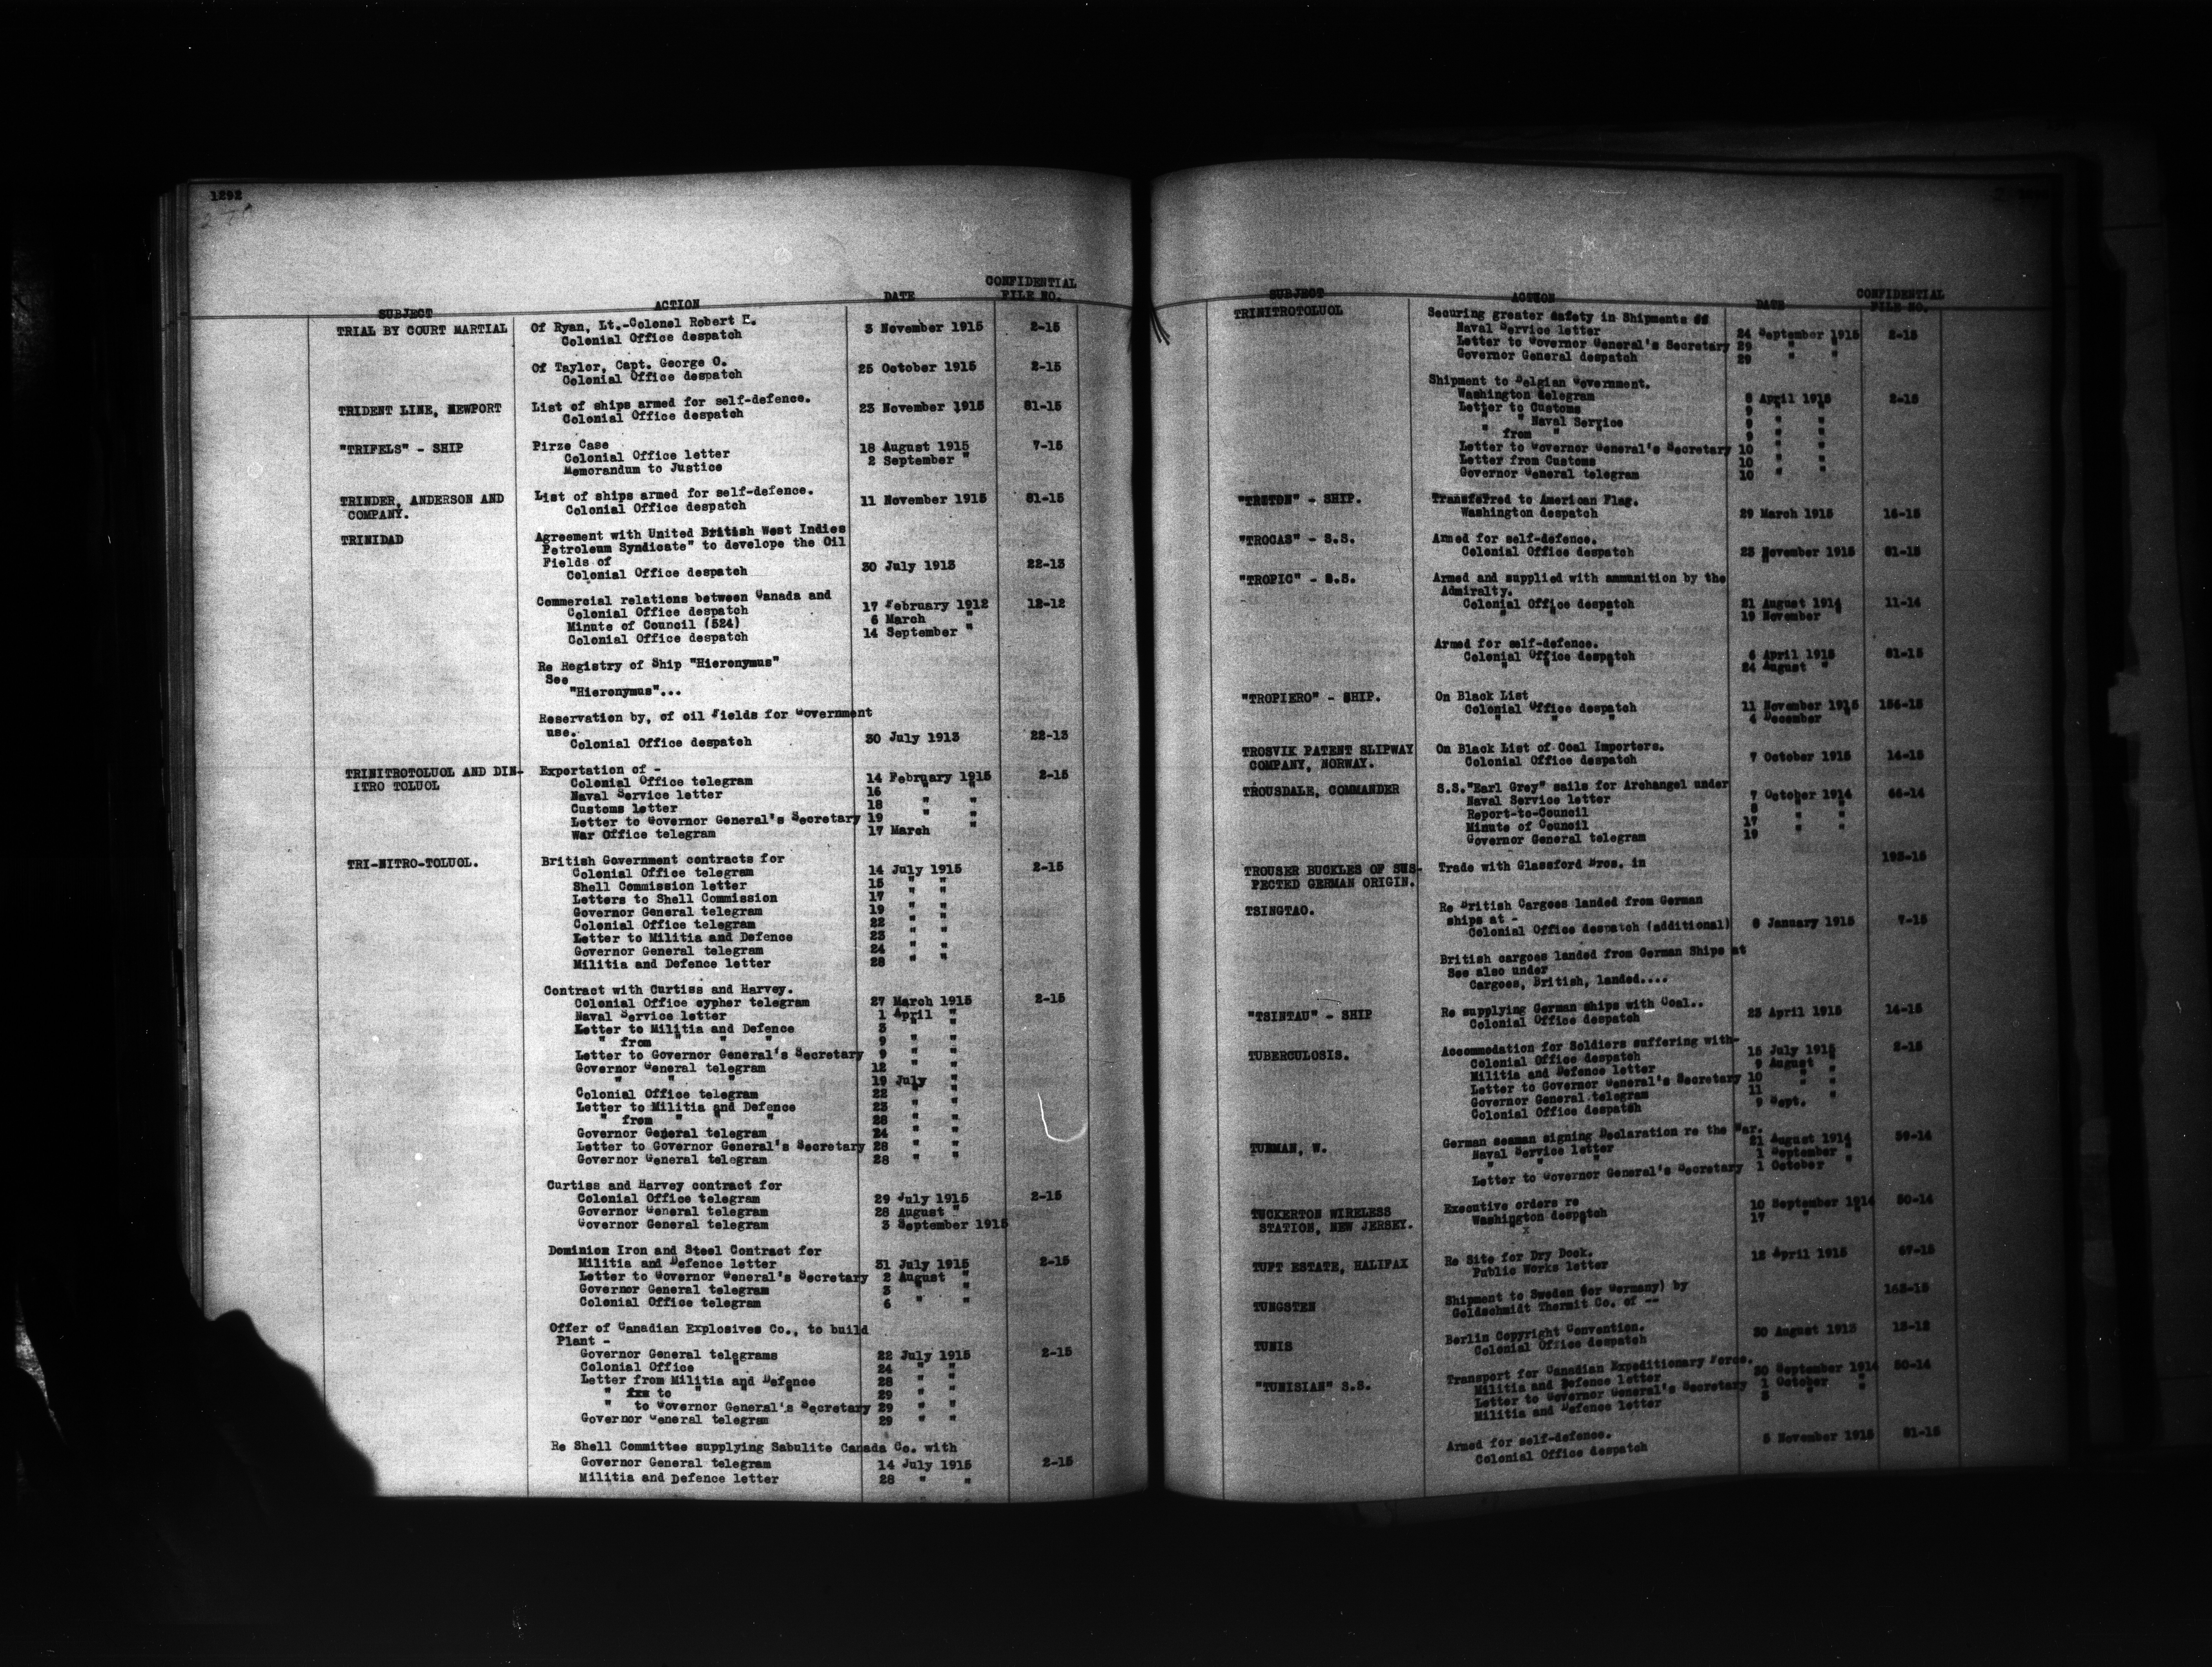 1292
SUBJECT ACTION DATE CONFIDENTIAL FILE NO.
TRIAL BY COURT MARTIAL Of Ryan, Lt.-Colonel Robert E.
Colonial Office despatch 3 November 1915 2-15
Of Taylor, Capt. George O.
Colonial Office despatch 25 October 1915 2-15
TRIDENT LINE, NEWPORT List of ships armed for self-defence.
Colonial Office despatch 23 November 1915 81-15
"TRIFELS" - SHIP Pirze Case
Colonial Office letter 18 August 1915 7-15
Memorandum to Justice 2 September "
TRINDER, ANDERSON AND List of ships armed for self-defence.
COMPANY. Colonial Office despatch 11 November 1915 81-15
TRINIDAD Agreement with United British West Indies
Petroleum Syndicate" to develope the Oil
Fields of
Colonial Office despatch 30 July 1913 22-13
Commercial relations between Canada and
Colonial Office despatch 17 February 1912 12-12
Minute of Council (524) 6 March "
Colonial Office despatch 14 September "
Re Registry of Ship "Hieronymus"
See
"Hieronymus"...
Reservation by, of oil Fields for Government
use.
Colonial Office despatch 30 July 1913 22-13
TRINITROTOLUOL AND DIN- Exportation of -
ITRO TOLUOL Colonial Office telegram 14 February 1915 2-15
Naval Service letter 16 " "
Customs letter 18 " "
Letter to Governor General's Secretary 19 " "
War Office telegram 17 March "
TRI-NITRO-TOLUOL. British Government contracts for
Colonial Office telegram 14 July 1915 2-15
Shell Commission letter 15 " "
Letters to Shell Commission 17 " "
Governor General telegram 19 " "
Colonial Office telegram 22 " "
Letter to Militia and Defence 23 " "
Governor General telegram 24 " "
Militia and Defence letter 28 " "
Contract with Curtiss and Harvey.
Colonial Office cypher telegram 27 March 1915 2-15
Naval Service letter 1 April "
Letter to Militia and Defence 3 " "
" from " " " 9 " "
Letter to Governor General's Secretary 9 " "
Governor General telegram 12 " "
" " " 19 July "
Colonial Office telegram 22 " "
Letter to Militia and Defence 23 " "
" from " " " 28 " "
Governor General telegram 24 " "
Letter to Governor General's Secretary 28 " "
Governor General telegram 28 " "
Curtiss and Harvey contract for
Colonial Office telegram 29 July 1915 2-15
Governor General telegram 28 August "
Governor General telegram 3 September 1915
Dominion Iron and Steel Contract for
Militia and Defence letter 31 July 1915 2-15
Letter to Governor General's Secretary 2 August "
Governor General telegram 3 " "
Colonial Office telegram 6 " "
Offer of Canadian Explosives Co., to build
Plant -
Governor General telegrams 22 July 1915 2-15
Colonial Office " 24 " "
Letter from Militia and Defence 28 " "
" to " " " 29 " "
" to Governor General's Secretary 29 " "
Governor General telegram 29 " "
Re Shell Committee supplying Sabulite Canada Co. with
Governor General telegram 14 July 1915 2-15
Militia and Defence letter 28 " "
SUBJECT ACTION DATE CONFIDENTIAL FILE NO.
TRINITROTOLUOL Securing greater safety in Shipments of
Naval Service letter 24 September 1915 2-15
Letter to Governor General's Secretary 29 " "
Governor General despatch 29 " "
Shipment to Belgian Government.
Washington telegram 8 April 1915 2-15
Letter to Customs 9 " "
" " Naval Service 9 " "
" from " " 9 " "
Letter to Governor General's Secretary 10 " "
Letter from Customs 10 " "
Governor General telegram 10 " "
"TRITON" - SHIP. Transferred to American Flag.
Washington despatch 29 March 1915 16-15
"TROCAS" - S.S. Armed for self-defence.
Colonial Office despatch 23 November 1915 81-15
"TROPIC" - S.S. Armed and supplied with ammunition by the
Admiralty.
Colonial Office despatch 21 August 1914 11-14
" " " 19 November "
Armed for self-defence.
Colonial Office despatch 6 April 1915 81-15
" " " 24 August "
"TROPIERO" - SHIP. On Black List
Colonial Office despatch 11 November 1915 156-15
" " " 4 December "
TROSVIK PATENT SLIPWAY On Black List of Coal Importers.
COMPANY, NORWAY. Colonial Office despatch 7 October 1915 14-15
TROUSDALE, COMMANDER S.S."Earl Grey" sails for Archangel under
Naval Service letter 7 October 1914 66-14
Report-to-Council 8 " "
Minute of Council 17 " "
Governor General telegram 19
TROUSER BUCKLES OF SUS- Trade with Glassford Bros. in 193-15
PECTED GERMAN ORIGIN.
TSINGTAO. Re British Cargoes landed from German
ships at -
Colonial Office despatch (additional) 6 January 1915 7-15
British cargoes landed from German Ships at
See also under
Cargoes, British, landed....
"TSINTAU" - SHIP Re supplying German ships with Coal..
Colonial Office despatch 23 April 1915 14-15
TUBERCULOSIS. Accommodation for Soldiers suffering with-
Colonial Office despatch 15 July 1915 2-15
Militia and Defence letter 9 August "
Letter to Governor General's Secretary 10 " "
Governor General telegram 11 " "
Colonial Office despatch 9 Sept. "
TUBMAN, W. German seaman signing Declaration re the War.
Naval Service letter 21 August 1914 59-14
" " " 1 September "
Letter to Governor General's Secretary 1 October "
TUCKERTON WIRELESS Executive orders re
STATION, NEW JERSEY. Washington despatch 10 September 1914 50-14
" " 17 " "
TUFT ESTATE, HALIFAX Re Site for Dry Dock.
Public Works letter 12 April 1915 67-15
TUNGSTEN Shipment to Sweden (for Germany) by
Goldschmidt Thermit Co. of -- 163-15
TUNIS Berlin Copyright Convention.
Colonial Office despatch 30 August 1913 13-12
"TUNISIAN" S.S. Transport for Canadian Expeditionary Force.
Militia and Defence letter 30 September 1914 50-14
Letter to Governor General's Secretary 1 October "
Militia and Defence letter 3 " "
Armed for self-defence.
Colonial Office despatch 5 November 1915 81-15